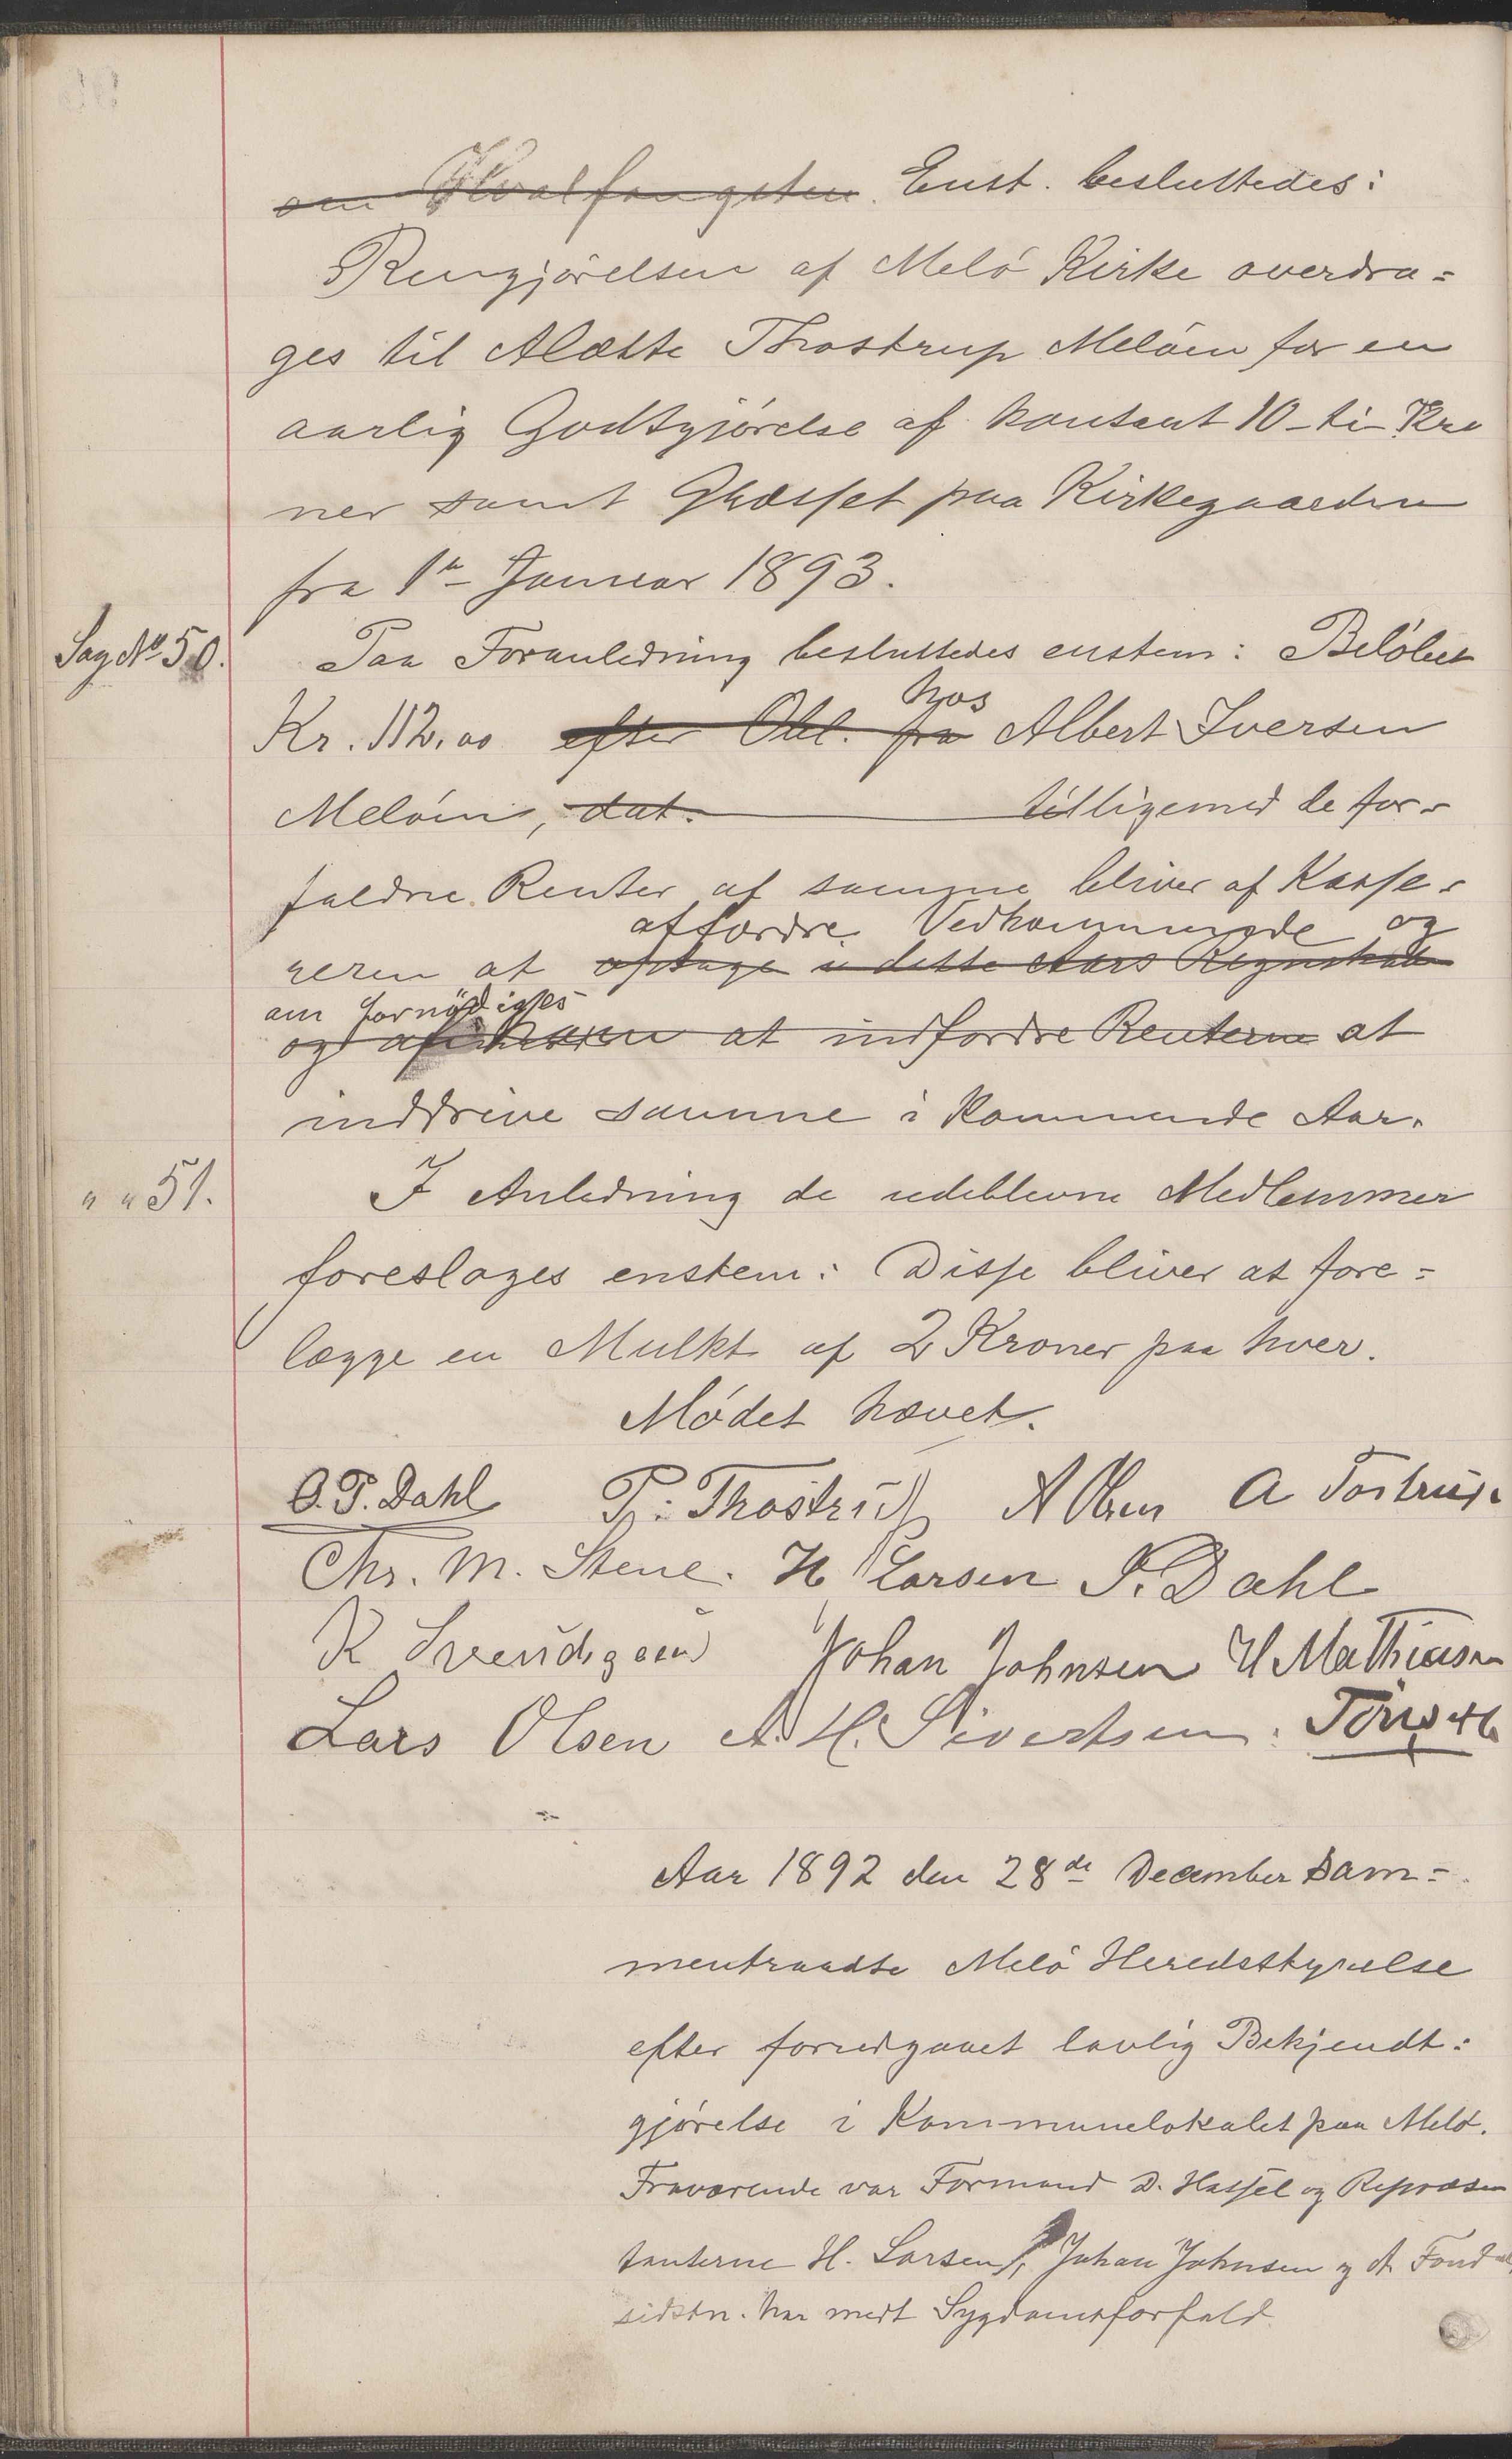 om Hvalfangsten. Enst. besluttedes:
Rengjørelsen af Melø Kirke overdra=
ges til Alette Thostrup Meløen for en
aarlig Godtgjørelse af kontant 10 - ti - Kro
ner samt Græsset paa Kirkegaarden
fra 1ste Januar 1893.
Sag No 50.
Paa Foranledning besluttedes enstem: Beløbet
hos
Kr. 112,00 efter Obl. fra Albert Iversen
Meløen, dat. tilligemed de for-
faldne Renter af samme bliver af Kasse-
affordre Vedkommende og
reren at optage i dette Aars Regnskab
om fornødiges
og af at indfordre Renterne at
inddrive samme i kommende Aar.
" " 51.
I Anledning de udeblevne Medlemmer
foresloges enstem: Disse bliver at fore=
lægge en Mulkt af 2 Kroner paa hver.
Mødet hævet.
O. P. Dahl P: Thostrup A Olsen A Tostrup.
Chr. M. Stene. H Larsen J. Dahl
K Svendsgaard Johan Johnsen H Mathiasen
Lars Olsen A. H. Sivertsen.
Aar 1892 den 28de December sam=
mentraadte Melø Heredsstyrelse
efter forudgaaet lovlig Bekjendt:
gjørelse i Kommunelokalet paa Melø.
Fraværende var Formand D. Hassel og Repræsen
tanterne H. Larsen, Johan Johnsen og A. Fondal,
sidstn. har meldt Sygdomsforfald.